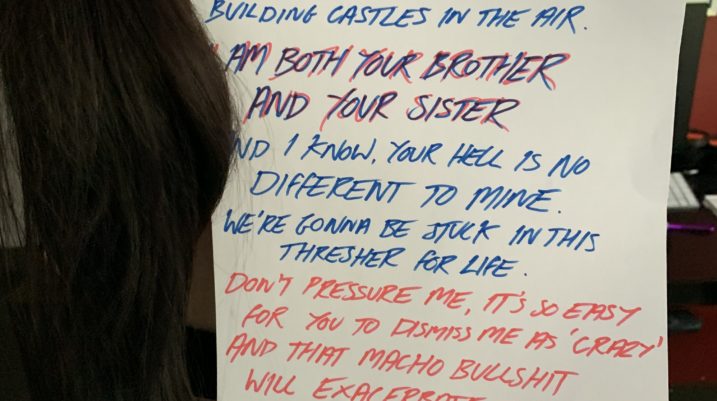 BUILDING CASTLES IN THE AIR.
I AM BOTH YOUR BROTHER
AND YOUR SISTER
AND I KNOW, YOUR HELL IS NO
DIFFERENT TO MINE.
WE'RE GONNA BE STUCK IN THIS
THRESHER FOR LIFE.
DON'T PRESSURE ME, IT'S SO EASY
FOR YOU TO DISMISS ME AS 'CRAZY'
AND THAT MACHO BULLSHIT
WILL EXACERBATE